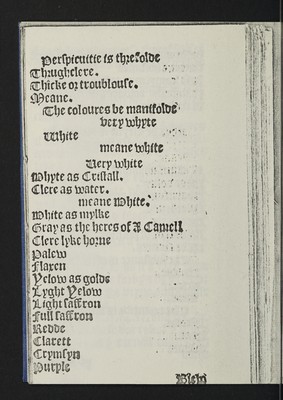 Perspicuitie is threfolde
Thrughclere.
Thicke or troublouse.
Meane.
The coloures be manifolde
very whyte
White
meane white
Uery white
Whyte as Cristall.
Clere as water.
meane white.
White as mylke
Gray as the heres of A Camell
Clere lyke horne
Palew
Flaxen
Yelow as golde
Lyght Yelow
Light saffron
Full saffron
Redde
Clarett
Crymsyn
Purple